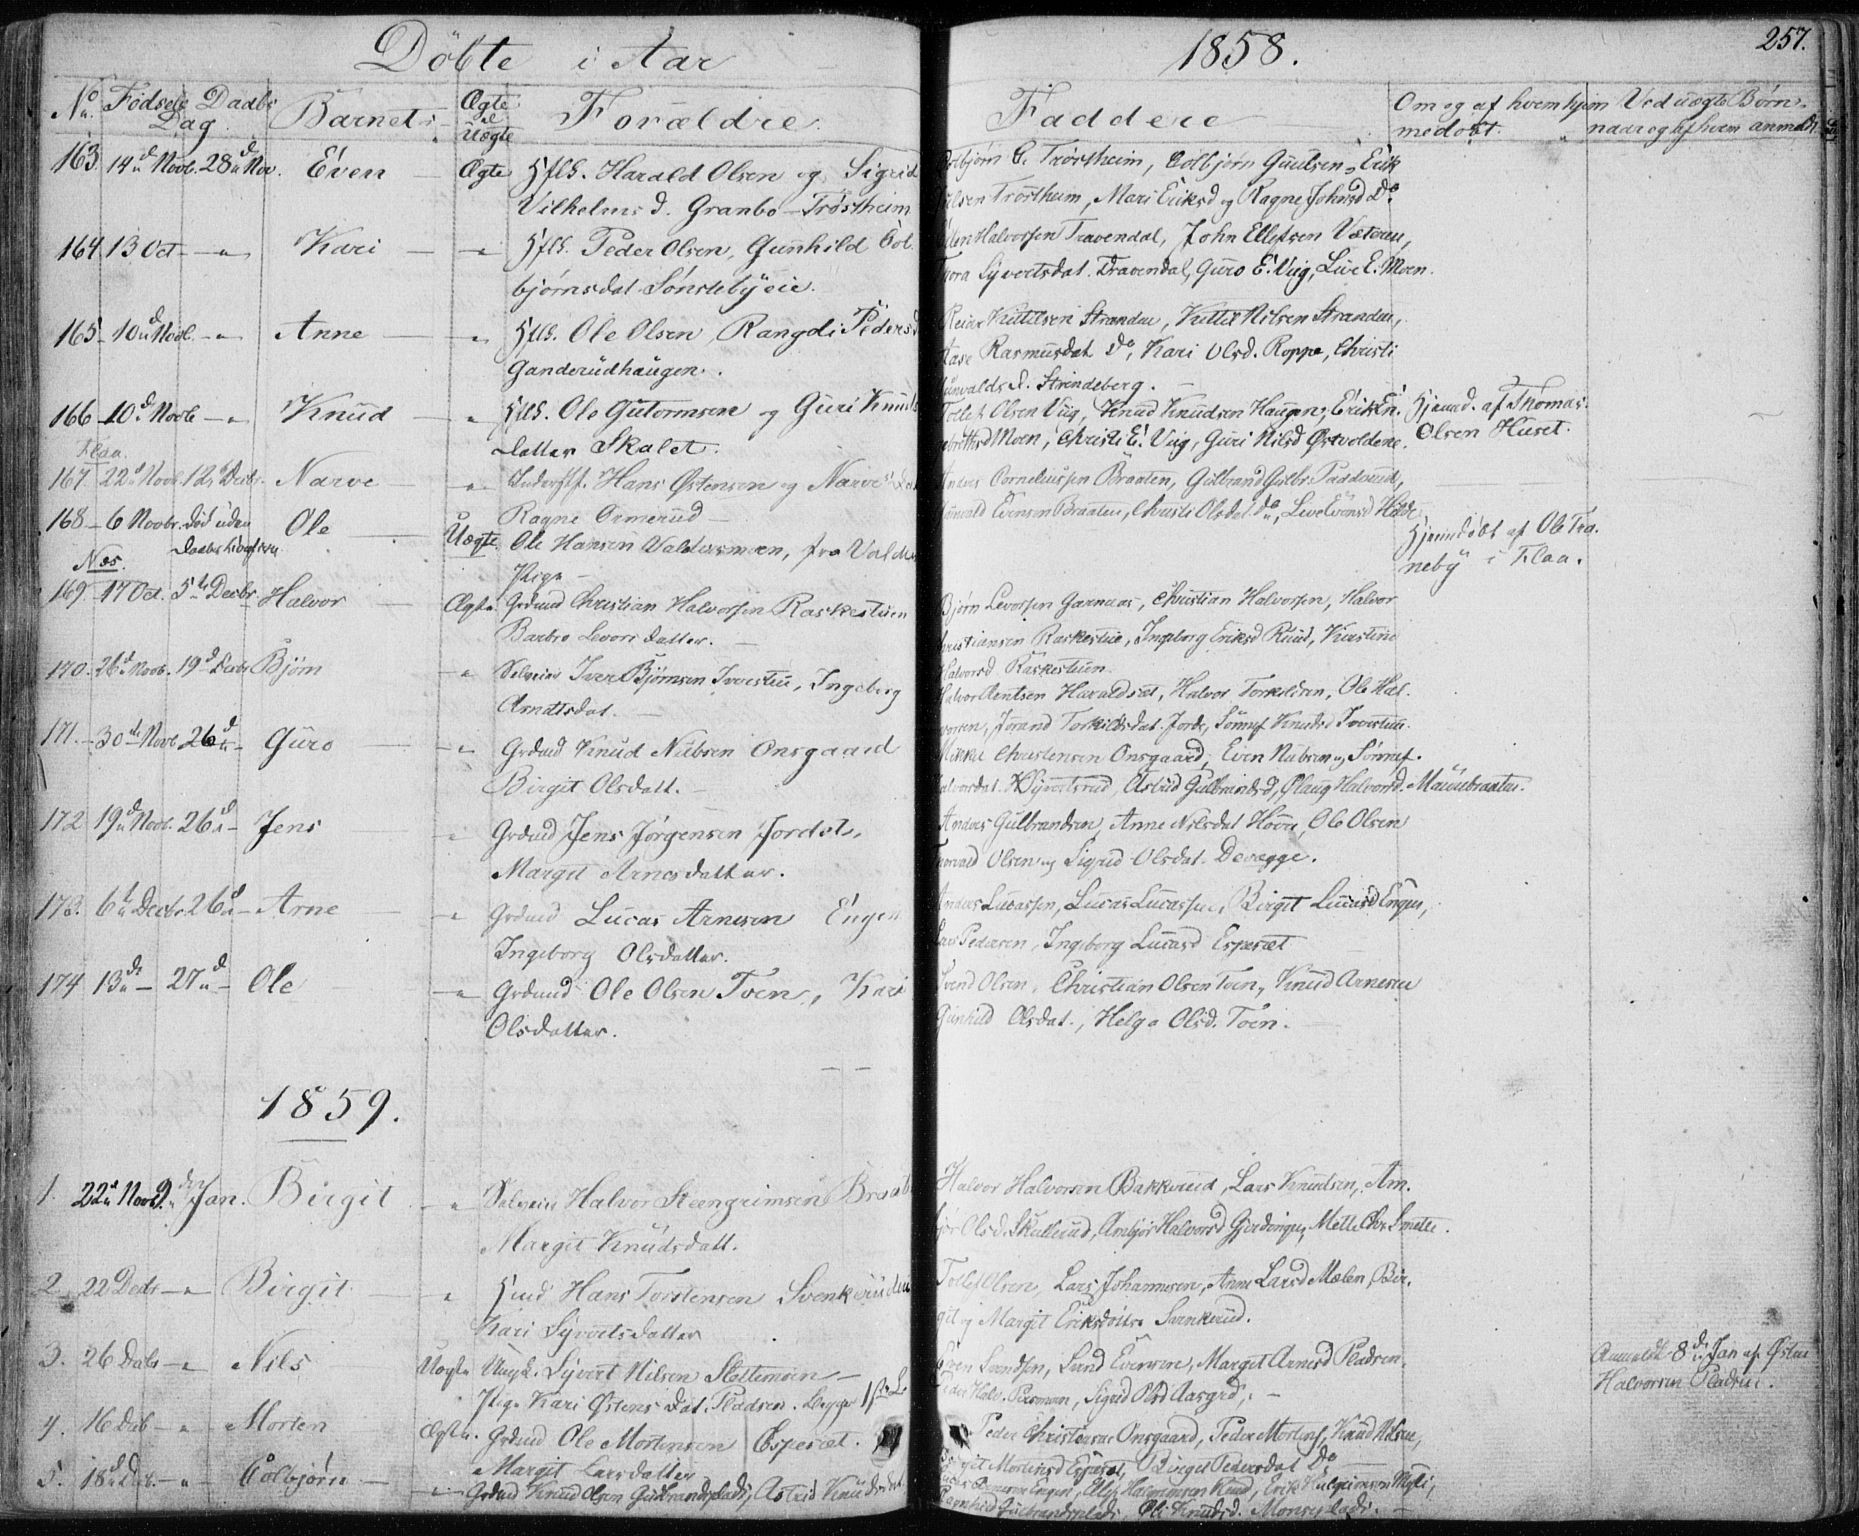 Döbte i Aar 1858. 257.
No. Födsels Daabs Dag Barnet Ægte el Uægte Forældre Faddere Om og af hvem hjemmedöbt. Ved uægte Börn naar og af hvem anmeldt
163. 14d Novb. 28d Nov. Even — Ægte Harald Olsen og Sigrid
Vilhelmsd. Granbo - Tröstheim
Tröstheim, Colbjörn Guulsen, Erik
Trostheim, Mari Eriksd og Ragne Johnsd Do
164. 13 Oct — " Kari — " Peder Olsen, Gunhild Col-
björnsdat Sönstebyeie.
Halvorsen Travendal, John Ellefsen Væteren,
Syvertsdat. Travendal, Guro E. Viig, Live E. Moen.
165 - 10d Novb. — " Anne — " Ole Olsen, Rangdi Pedersd
Ganderudhaugen.
Reiar Kittilsen Stranden, Kittil Nilsen Stranden,
Aase Rasmusdat Do, Kari Olsd. Roppe, Christi
Strindeberg.
166 - 10d Novb — " Knud — " Ole Gutormsen og Guri Knuds
datter Skalet.
Tollef Olsen Viig, Knud Knudsen Haugen, Erik En.
Moen, Christi E. Viig, Guri Nilsd Östvoldene.
Hjemmd. af Thomas
Olsen Huset.
Flaa.
167. 22d Novb. 12te Decbr. Narve — " Hans Östensen og Narve
Ragne Ormerud —
Anders Corneliussen Braaten, Gulbrand Gulbr. Paddeund,
Evensen Braaten, Christi Olsdat Do, Live Evensd
168 - 6 Novbr. död uden Daabs Ole — Uægte Ole Hansen Valdersmoen, fra Valders
Pige —
Hjemmdöbt af Ole Tra-
neby i Flaa.
Næs.
169. 17 Oct. 5te Decbr. Halvor — Ægte. Grdmd Christian Halvorsen Raskestuen
Barbro Levorsdatter. —
Björn Levorsen Garnaas, Christian Halvorsen, Halvor
Christiansen Raskestue, Ingeborg Eriksd Ruud, Kirstine
Halvorsd Raskestuen
170. 26d Novb. 19d Decbr Björn " Selveier Iver Björnsen Iverstue, Ingeborg
Arndtsdat. —
Halvor Arentsen Haraldset, Halvor Torkildsen, Ole Hal-
vorsen, Jörand Torkildsdat Jorde, Sönnef Knudsd Iverstue.
171. - 30de Novb 26d " - Guro — " Grdmd Knud Nubsen Onsgaard
Birgit Olsdatt. —
Mikkel Christensen Onsgaard, Even Nubsen og Sönnef.
Halvorsdat. Syvertsrud, Astrid Gulbrandsd, Olaug Halvorsd. Maurubraaten.
172 19d Novb. 26d " - Jens " Grdmd Jens Jörgensen Jordet,
Margit Arnesdatter.
Anders Gulbrandsen, Anne Nilsdat Hovre, Ole Olsen
Torvald Olsen og Sigrid Olsdat. Devegge.
173. 6te Decbr 26d - Arne — " Grdmd Lucas Arnesen Engen
Ingeborg Olsdatter.
Anders Lucassen, Lucas Lucassen, Birgit Lucasd Engen,
Lars Pedersen, Ingeborg Lucasd Espeset
174 13de " - 27d " - Ole — " Grdmd Ole Olsen Toen, Kari
Olsdatter.
Svend Olsen, Christian Olsen Toen, Knud Arnesen
Gunhild Olsdat., Helge Olsd. Toen.
1859.
1. 22d Novb 9de Jan. Birgit — " Selveier Halvor Steengrimsen
Margit Knudsdatt.
Halvor Halvorsen Bakkerud, Lars Knudsen, Am-
björ Olsd. Skullerud, Ambjör Halvorsd Gjerdingen, Mette Chr. Smette.
2. 22 Decbr — " Birgit " Hmd Hans Torstensen Svenkeruden
Kari Syvertsdatter
Tollef Olsen, Lars Johannesen, Anne Larsd Mælen, Bir-
git og Margit Eriksdöttre Svenkerud.
3. 26 Decbr — " Nils Uægte Ungk. Syvert Nilsen Slettemoen —
Pige Kari Östensdat. Pladsen.
Even Svendsen, Svend Evensen, Margit Arnesd Pladsen,
Peder Halv. Sigrid Olsd Aasgrd. —
Anmeldt 8de Jan af Östen
Halvorsen Pladsen.
4. 16 Decb — " Morten Ægte. Grdmd Ole Mortensen Espeset.
Margit Larsdatter
Peder Christensen Onsgaard, Peder Mortens, Knud Nilsen,
Birgit Mortensd Espeset, Birgit Pedersdat Do
5. 18d Decb. — " Colbjörn — " Grdmd Knud Olsen Gulbrandsplads, Astrid Knudsdat
Engen, Ellef Ruud, Erik Myli,
Ragnhild Gulbrandsplads, Oli Knudsd. Monseplads. —